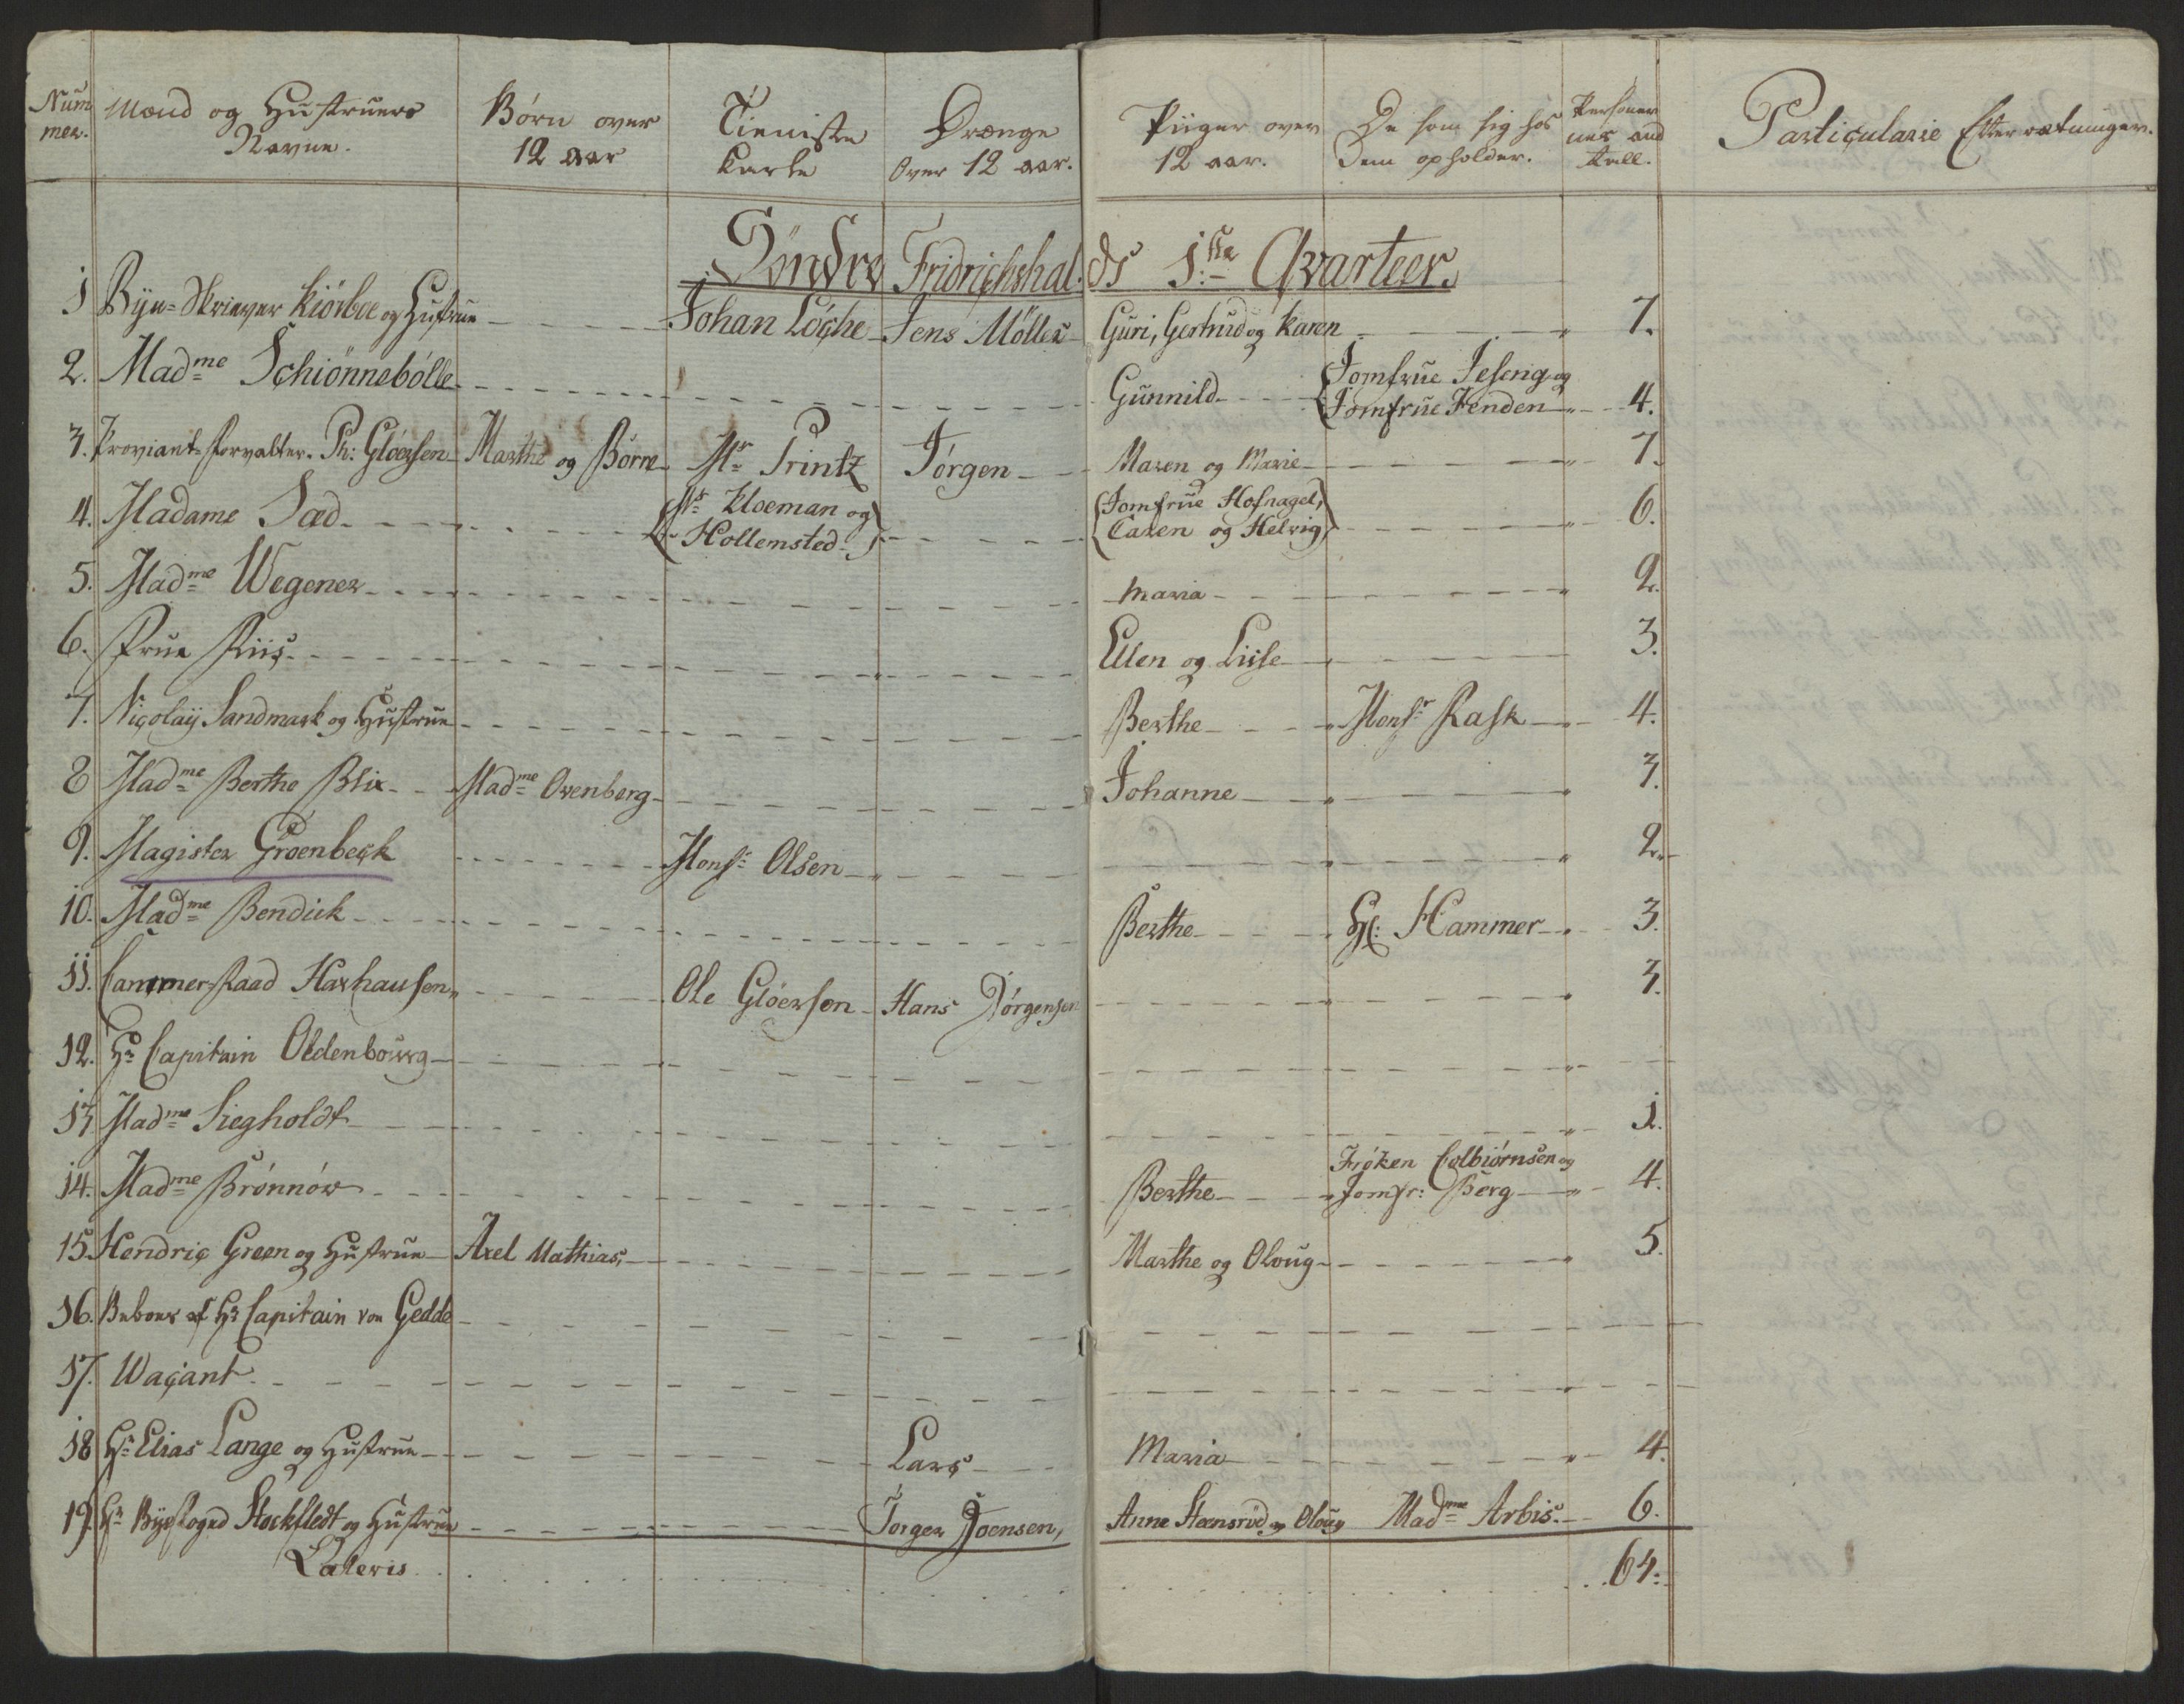 Num mer. Mænd og Hustruers Navne. Børn over 12 aar Tieniste Karle Drænge Over 12 aar. Piiger over 12 aar. De som sig hos Dem opholder. Personer nes and tall. Particulaire Efterretninger.
Søndre Fridrichshalds 1ste Qvarteer.
1 Bÿe-Skriever Kiörboe og Hustrue Johan Löche Jens Möller Guri, Gertrud og Karen 7.
2. Madme Schiönnebölle Gunnild Jomfrue Jeseng og Jomfrue Fenden 4.
3. Proviant-forvalter Ph: Glöersen Marthe og Börre Mr Printz Jörgen Maren og Marie 7.
4. Madame Sæd Mr: Kloeman og Hollemsted Jomfrue Hofnagel, Caren og Helvig 6.
5. Madme Wegener Maria 2.
6. Frue Riis Ellen og Liise 3.
7. Nicolaÿ Sandmark og Hustrue Berthe Monsr Rask 4.
8 Madme Berthe Blix Madme Ovenberg Johanne 3.
9. Magister Gröenbeck Monsr Olsen 2.
10. Madme Bendick Berthe Hr: Hammer 3.
11. Cammer-Raad Haxhausen Ole Glöersen Hans Jörgensen 3.
12. Hr Capitain Oldenbourg
13 Madme Siegholdt 1.
14. Madme Brönnöw Berthe Fröken Colbiörnsen og Jomfr: Berg 4.
15. Hendric Green og Hustrue Axel Mathias, Marthe og Oloug 5.
16. Beboes af Hr Capitain von Gedde
17. Waçant
18 Hr Elias Lange og Hustrue Lars Maria 4.
19. Hr Bÿefoged Stockfledt og Hustrue Torger Joensen, Anne Steensrüd og Oloug Madme Arbis. 6.
Lateris 64: